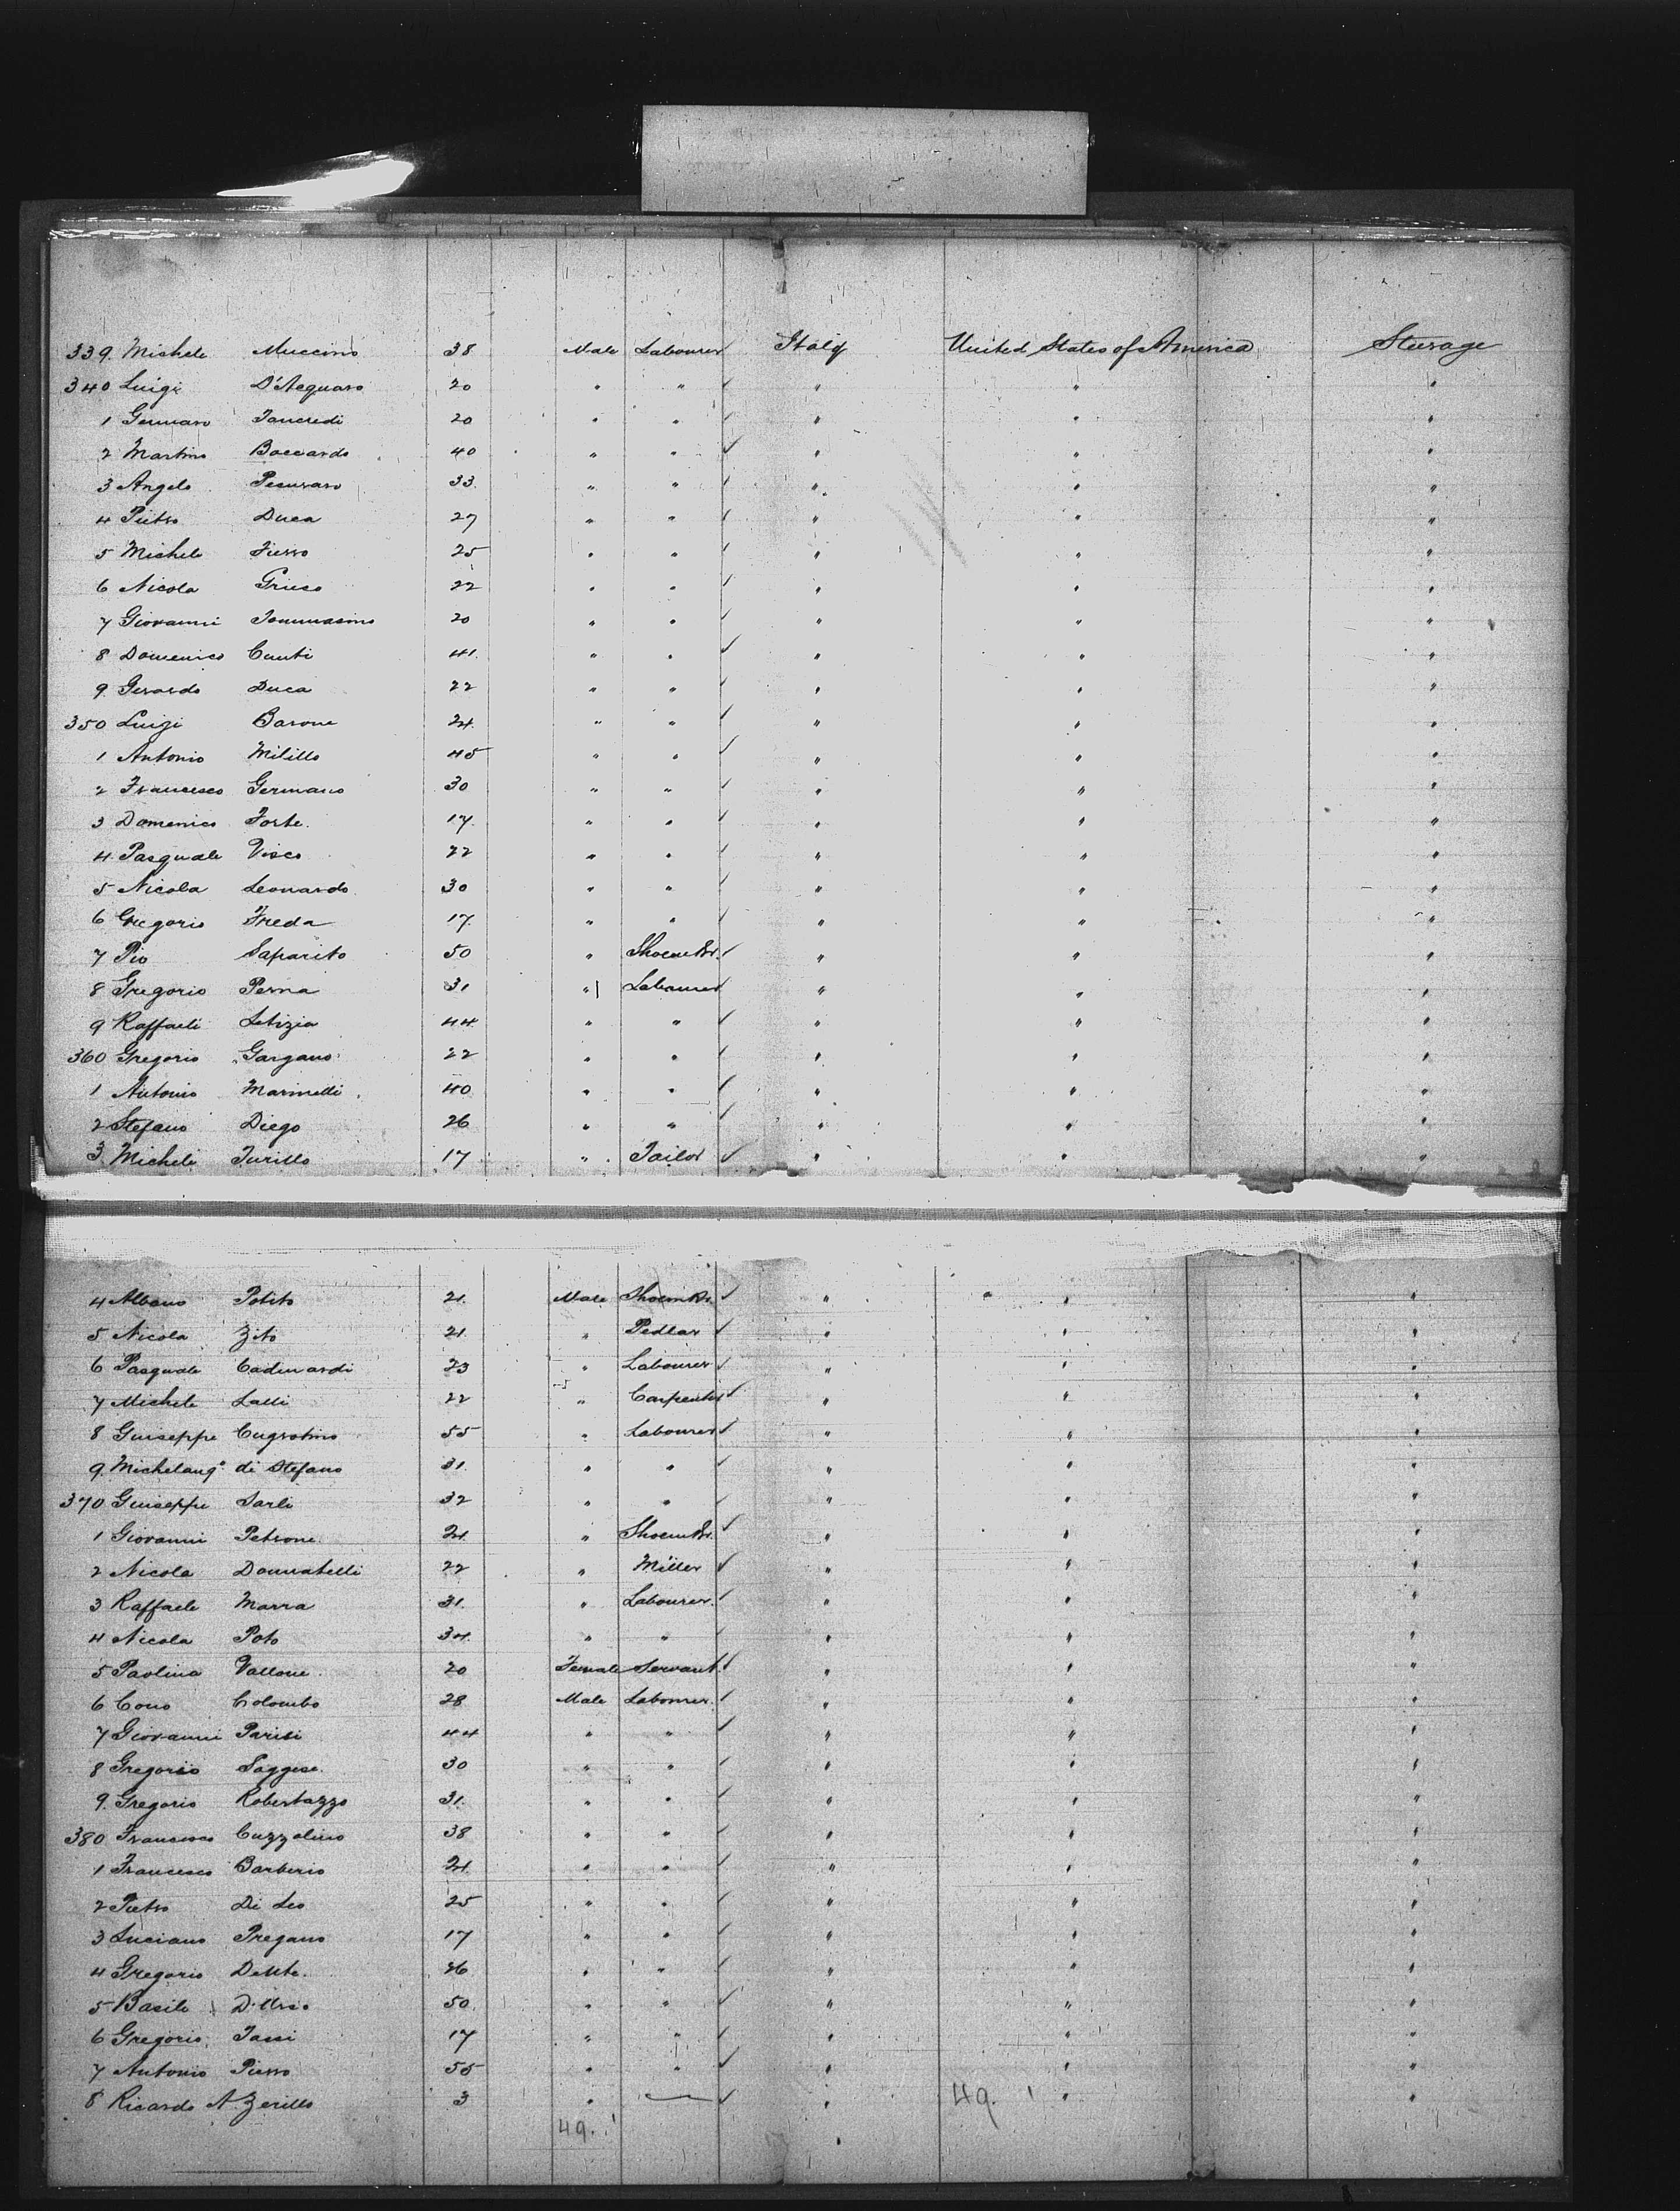 339. Michele Muccino 38 Male Labourer Italy United States of America Steerage
340 Luigi D'Acquaro 20 " " " " "
1 Gennaro Tancredi 20 " " " " "
2 Martino Boccardo 40 " " " " "
3 Angelo Pecuraro 33 " " " " "
4 Pietro Duca 27 " " " " "
5 Michele Fierro 25 " " " " "
6 Nicola Grieco 22 " " " " "
7 Giovanni Tommasino 20 " " " " "
8 Domenico Conti 41. " " " " "
9. Gerardo Duca 22 " " " " "
350 Luigi Barone 24. " " " " "
1 Antonio Milillo 45 " " " " "
2 Francesco Germano 30 " " " " "
3 Domenico Forte. 17. " " " " "
4. Pasquale Visco 22 " " " " "
5 Nicola Leonardo 30 " " " " "
6 Gregorio Freda 17. " " " " "
7 Pio Saparito 50 " Shoemkr. " " "
8 Gregorio Perna 31 " Labourer " " "
9 Raffaeli Letizia 44. " " " " "
360 Gregorio Gargano 22 " " " " "
1 Antonio Marinelli 40 " " " " "
2 Stefano Diego 26 " " " " "
3. Micheli Turillo 17 " Tailor " " "
4 Albano Potito 21. Male Shoemkr. " " "
5 Nicola Zito 21. " Pedlar " " "
6 Pasquale Cadinardi 23 " Labourer " " "
7 Michele Lalli 22 " Carpenter " " "
8 Guiseppe Cugrotino 55 " Labourer " " "
9. Michelang° di Stefano 31. " " " " "
370 Guiseppe Sarli 32 " " " " "
1 Giovanni Petrone. 24. " Shoemkr. " " "
2 Nicola Donnatelli 22 " Miller " " "
3 Raffaele Marra 31. " Labourer. " " "
4 Nicola Poto 34. " " " " "
5 Paolina Vallone. 20 Female Servant " " "
6 Cono Colombo 28 Male Labourer. " " "
7 Giovanni Parisi 44 " " " " "
8 Gregorio Saggese. 30 " " " " "
9. Gregorio Robertazzo 31. " " " " "
380 Francesco Cuzzolino 38 " " " " "
1 Francesco Barberio 24. " " " " "
2 Pietro Di Leo 25 " " " " "
3 Luciano Pregano 17 " " " " "
4 Gregorio Dente. 26 " " " " "
5 Basile 50. " " " " "
6 Gregorio Tassi 17 " " " " "
7 Antonio Pierro 55 " " " " "
8 Ricardo A. Zerillo 3 " — " 49. " "
49.